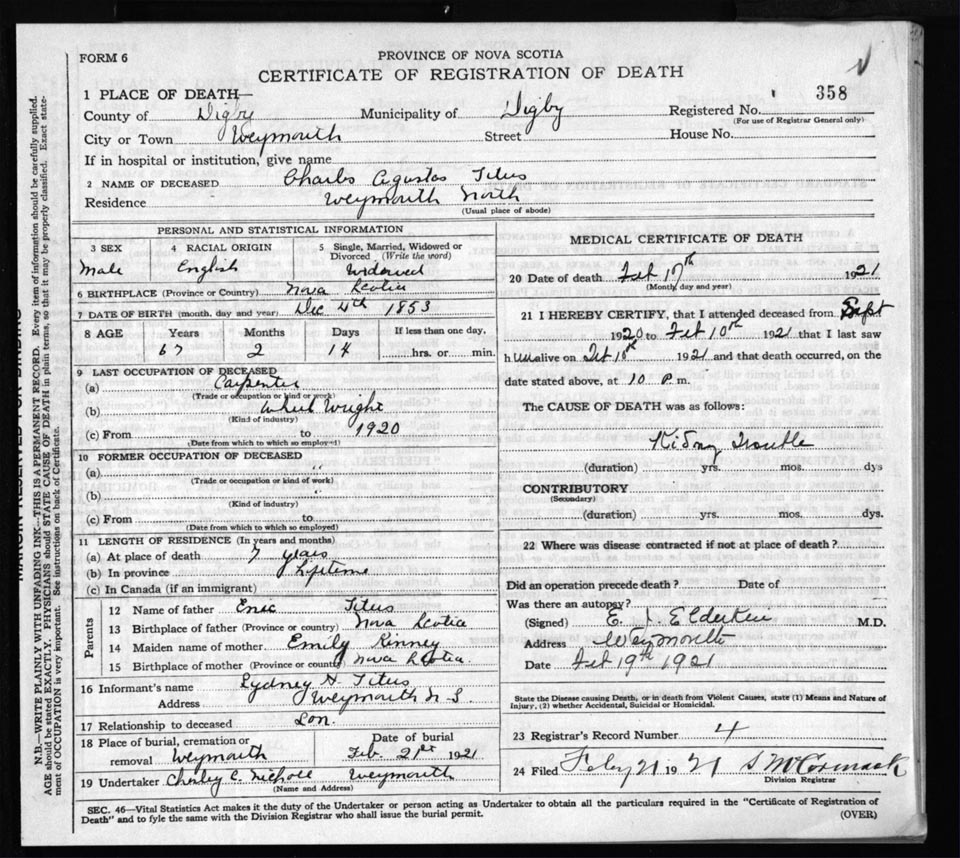 FORM 6
PROVINCE OF NOVA SCOTIA
CERTIFICATE OF REGISTRATION OF DEATH
1 PLACE OF DEATH—
County of Digby Municipality of Digby Registered No. 358
(For use of Registrar General only)
City or Town Weymouth Street House No.
If in hospital or institution, give name
2 NAME OF DECEASED Charles Agustas Titus
Residence Weymouth North
(Usual place of abode)
PERSONAL AND STATISTICAL INFORMATION
3 SEX 4 RACIAL ORIGIN 5 Single, Married, Widowed or Divorced (Write the word)
Male English Widowed
6 BIRTHPLACE (Province or Country) Nova Scotia
7 DATE OF BIRTH (month, day and year) Dec 4th 1853
8 AGE Years Months Days If less than one day,
67 2 14 hrs. or min.
9 LAST OCCUPATION OF DECEASED
(a) Carpenter
(Trade or occupation or kind or work)
(b) Wheel Wright
(Kind of industry)
(c) From to 1920
(Date from which to which so employed)
10 FORMER OCCUPATION OF DECEASED
(a) "
(Trade or occupation or kind of work)
(b) "
(Kind of industry)
(c) From to
(Date from which to which so employed)
11 LENGTH OF RESIDENCE (In years and months)
(a) At place of death 7 years
(b) In province Lifetime
(c) In Canada (if an immigrant)
Parents
12 Name of father Titus
13 Birthplace of father (Province or country) Nova Scotia
14 Maiden name of mother Emily Kinney
15 Birthplace of mother (Province or country) Nova Scotia
16 Informant's name Sydney H. Titus
Address Weymouth N.S.
17 Relationship to deceased Son.
18 Place of burial, cremation or removal Weymouth Date of burial Feb. 21st 1921
19 Undertaker Charley C. Nichols Weymouth
(Name and Address)
MEDICAL CERTIFICATE OF DEATH
20 Date of death Feb 17th 1921
(Month, day and year)
21 I HEREBY CERTIFY, that I attended deceased from Sept
1920 to Feb 10th 1921 that I last saw
h alive on Feb 1921 and that death occurred, on the
date stated above, at 10 P. m.
The CAUSE OF DEATH was as follows:
Kidney Trouble
(duration) yrs. mos. dys
CONTRIBUTORY
(Secondary)
(duration) yrs. mos. dys.
22 Where was disease contracted if not at place of death?
Did an operation precede death? Date of
Was there an autopsy?
(Signed) E. Elderkin M.D.
Address Weymouth
Date Feb 19th 1921
State the Disease causing Death, or in death from Violent Causes, state (1) Means and Nature of
Injury, (2) whether Accidental, Suicidal or Homicidal.
23 Registrar's Record Number 4
24 Filed Feby 21 1921 S McCormack
Division Registrar
SEC. 46—Vital Statistics Act makes it the duty of the Undertaker or person acting as Undertaker to obtain all the particulars required in the "Certificate of Registration of
Death" and to fyle the same with the Division Registrar who shall issue the burial permit.
(OVER)
N.B.—WRITE PLAINLY WITH UNFADING INK—THIS IS A PERMANENT RECORD. Every item of information should be carefully supplied.
AGE should be stated EXACTLY. PHYSICIANS should STATE CAUSE OF DEATH in plain terms, so that it may be properly classified. Exact state-
ment of OCCUPATION is very important. See instructions on back of Certificate.